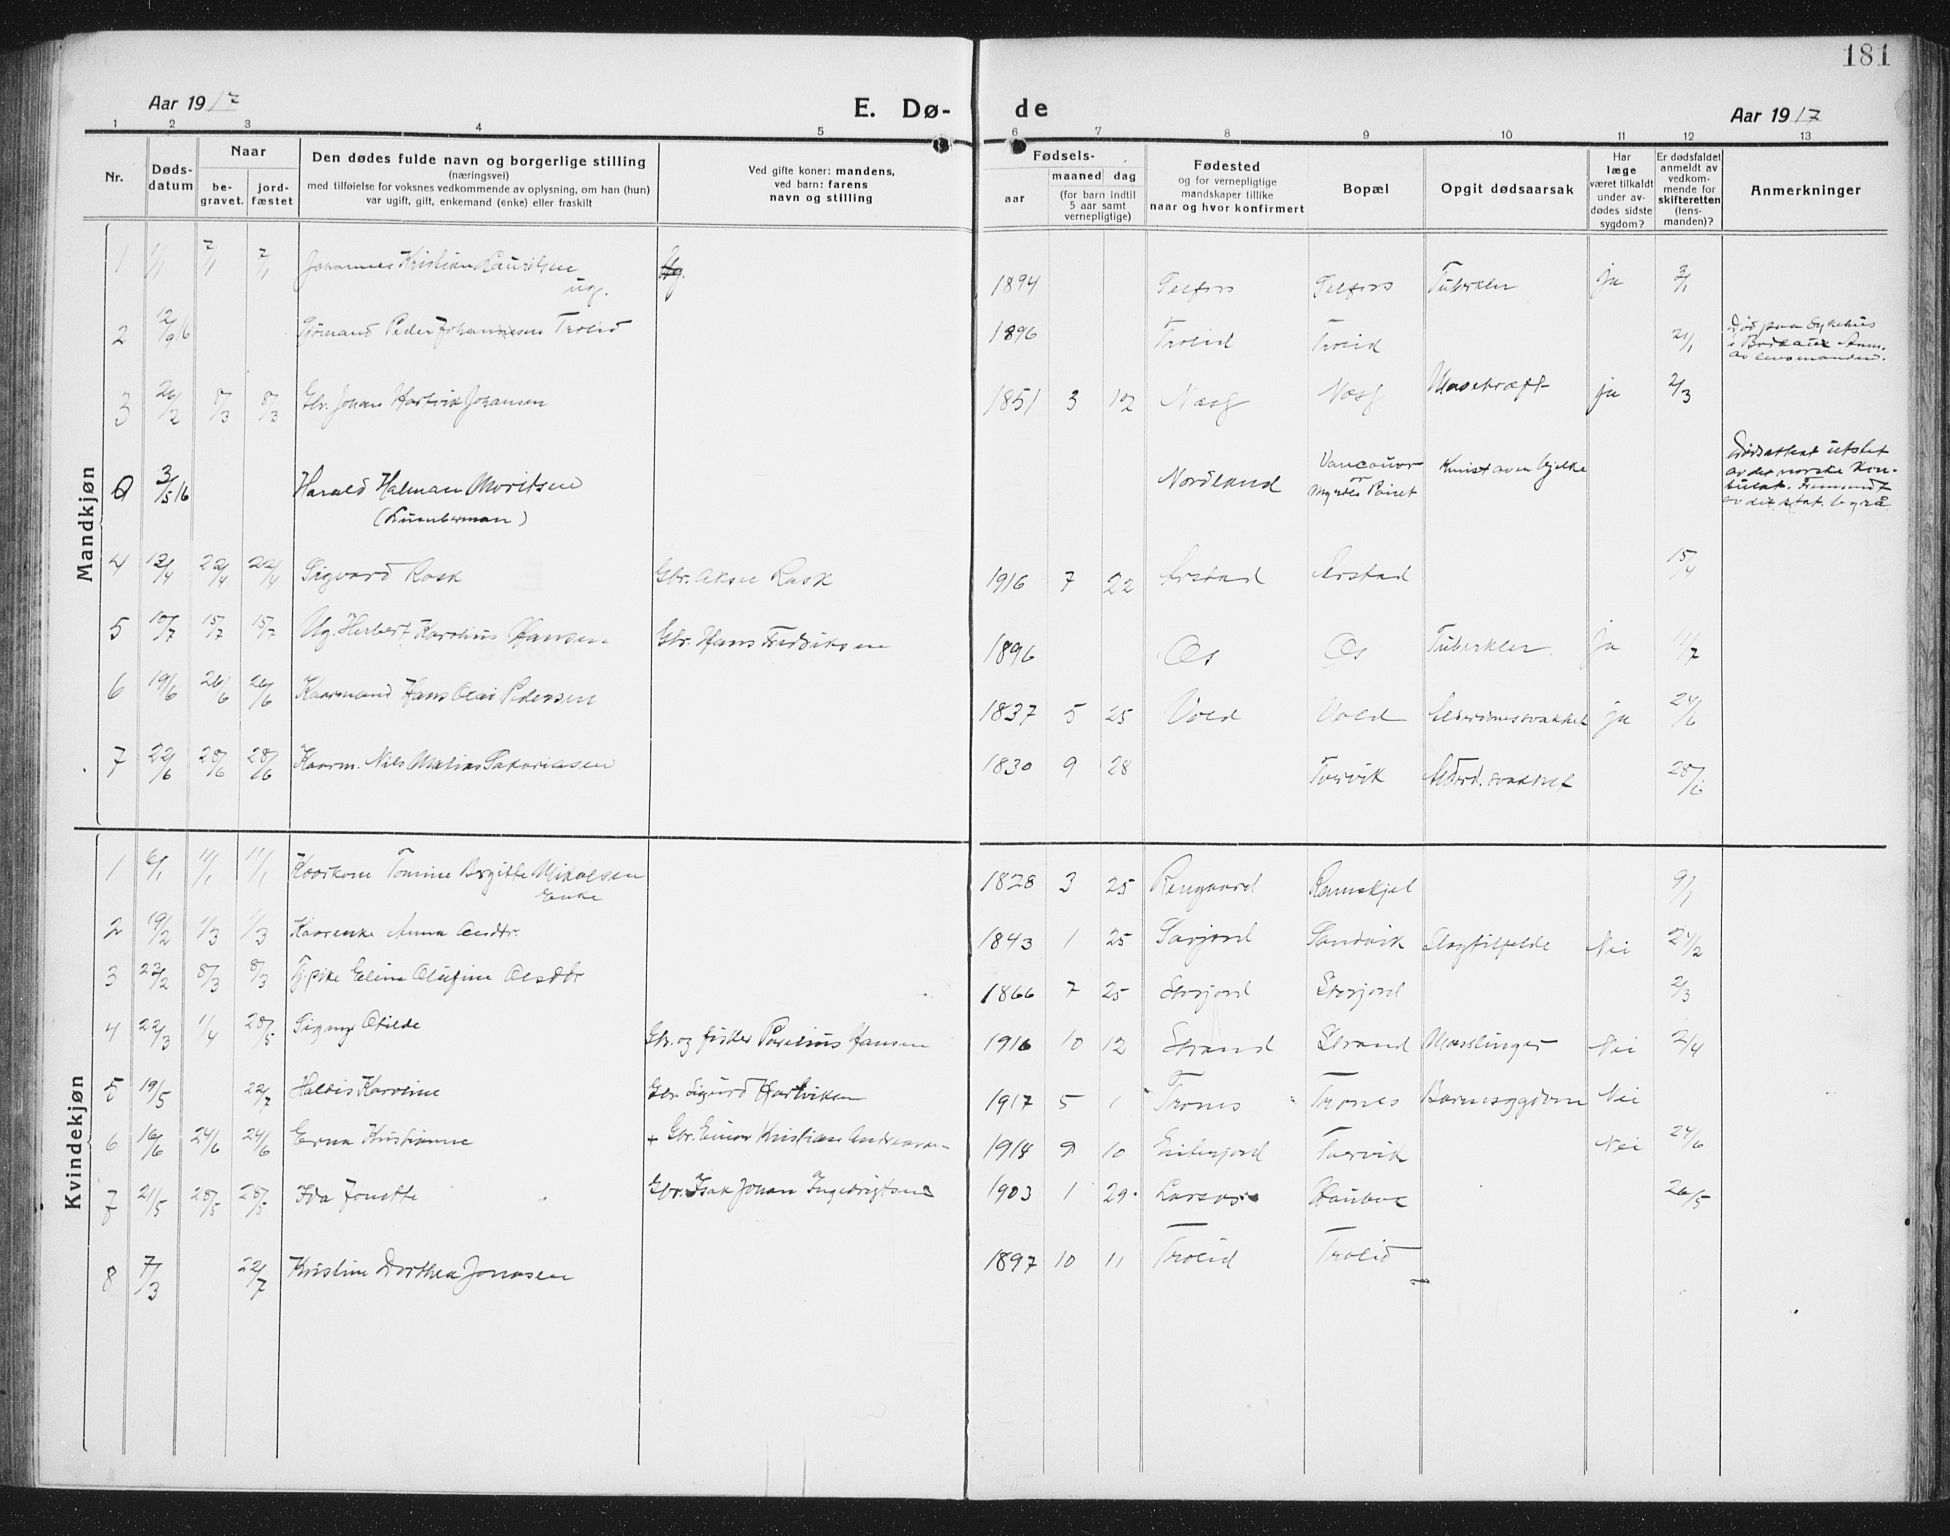 181
Aar 1917 E. Dø- de Aar 1917
1 2 3 4 5 6 7 8 9 10 11 12 13
Nr. Døds-datum Naar be-gravet. jord-fæstet Den dødes fulde navn og borgerlige stilling (næringsvei) med tilføielse for voksnes vedkommende av oplysning, om han (hun) var ugift, gift, enkemand (enke) eller fraskilt Ved gifte koner: mandens, ved barn: farens navn og stilling Fødsels- aar maaned dag (for barn indtil 5 aar samt vernepligtige) Fødested og for vernepligtige mandskaper tillike naar og hvor konfirmert Bopæl Opgit dødsaarsak Har læge været tilkaldt under av-dødes sidste sygdom? Er dødsfaldet anmeldt av vedkom-mende for skifteretten (lens-manden)? Anmerkninger
Mandkjøn
1 1/1 7/1 7/1 Johannes Kristian Lauritsen ug. 1894 Selfors Selfors Tuberkler ja 3/1
2 12/9 16 Sømand Peder Johannesen Trolid 1896 Trolid Trolid 21/1 Død paa Sykehus i Bordaux Anm. av lensmanden.
3 26/2 8/3 8/3 Gbr. Johan Hartvik Johansen 1851 3 12 Næsf Næsf ja 2/3
0 3/5 16 Harald Halman Moritsen (Lumberman) Nordland Vancouver Knust av en bjelke Dødsattest utstet av det norske Kon-sulat. Fremsendt av det stat. byrå
4 13/4 22/4 22/4 Sigvard Rask Gbr. Aksel Rask 1916 7 22 Arstad Arstad 15/4
5 10/7 15/7 15/7 Ug. Herbert Karolius Hansen Gbr. Hans Fredriksen 1896 Os Os Tuberkler ja 11/7
6 19/6 26/6 26/6 Kaarmand Hans Olai Pedersen 1837 5 25 Vold Vold Alderdomssvakhet ja 24/6
7 22/6 28/6 28/6 Kaarm. Nils Matias Sakariasen 1830 9 28 Tvervik Alderd.svakhet 28/6
Kvindekjøn
1 6/1 11/1 11/1 Kaarkone Tomine Birgitte Mikalsen Enke 1828 3 25 Rengaard Ramskjel 9/1
2 19/2 1/3 1/3 Kaarenke Anna Andtr. 1843 1 25 Sarjord Sandvik Slagtilfelde Nei 24/2
3 23/2 8/3 8/3 Tj.pike Eline Olufine Olsdtr 1866 7 25 Storjord Storjord 2/3
4 22/3 1/4 28/5 Signy Otilde Gbr. og fisker Parelius Hansen 1916 10 12 Strand Strand Mæslinger Nei 2/4
5 19/5 22/7 Haldis Karoline Gbr. Sigurd Hartviksen 1917 5 1 Trones Trones Barnesygdom Nei
6 16/6 24/6 24/6 Erna Kristianne + Gbr. Einar Kristian Andreasen 1914 9 10 Tvervik Nei 24/6
7 21/5 28/5 28/5 Ida Jonette Gbr. Isak Johan Ingebrigtsen 1903 1 29 Larsos Haubak 26/5
8 7/3 22/7 Kristine Dorthea Jonasen 1897 10 11 Trolid Trolid